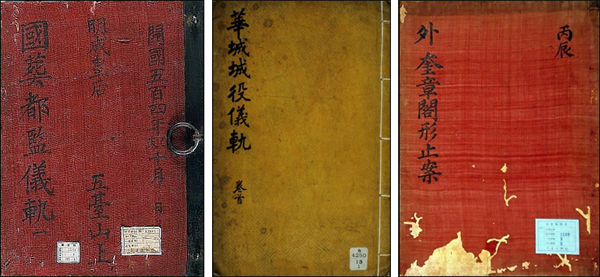 開國五百四年十月 日
明成皇后
五臺山上
國葬都監儀軌 一
華城城役儀軌 卷首
奎
4250
18
1
丙辰
外奎章閣形止案